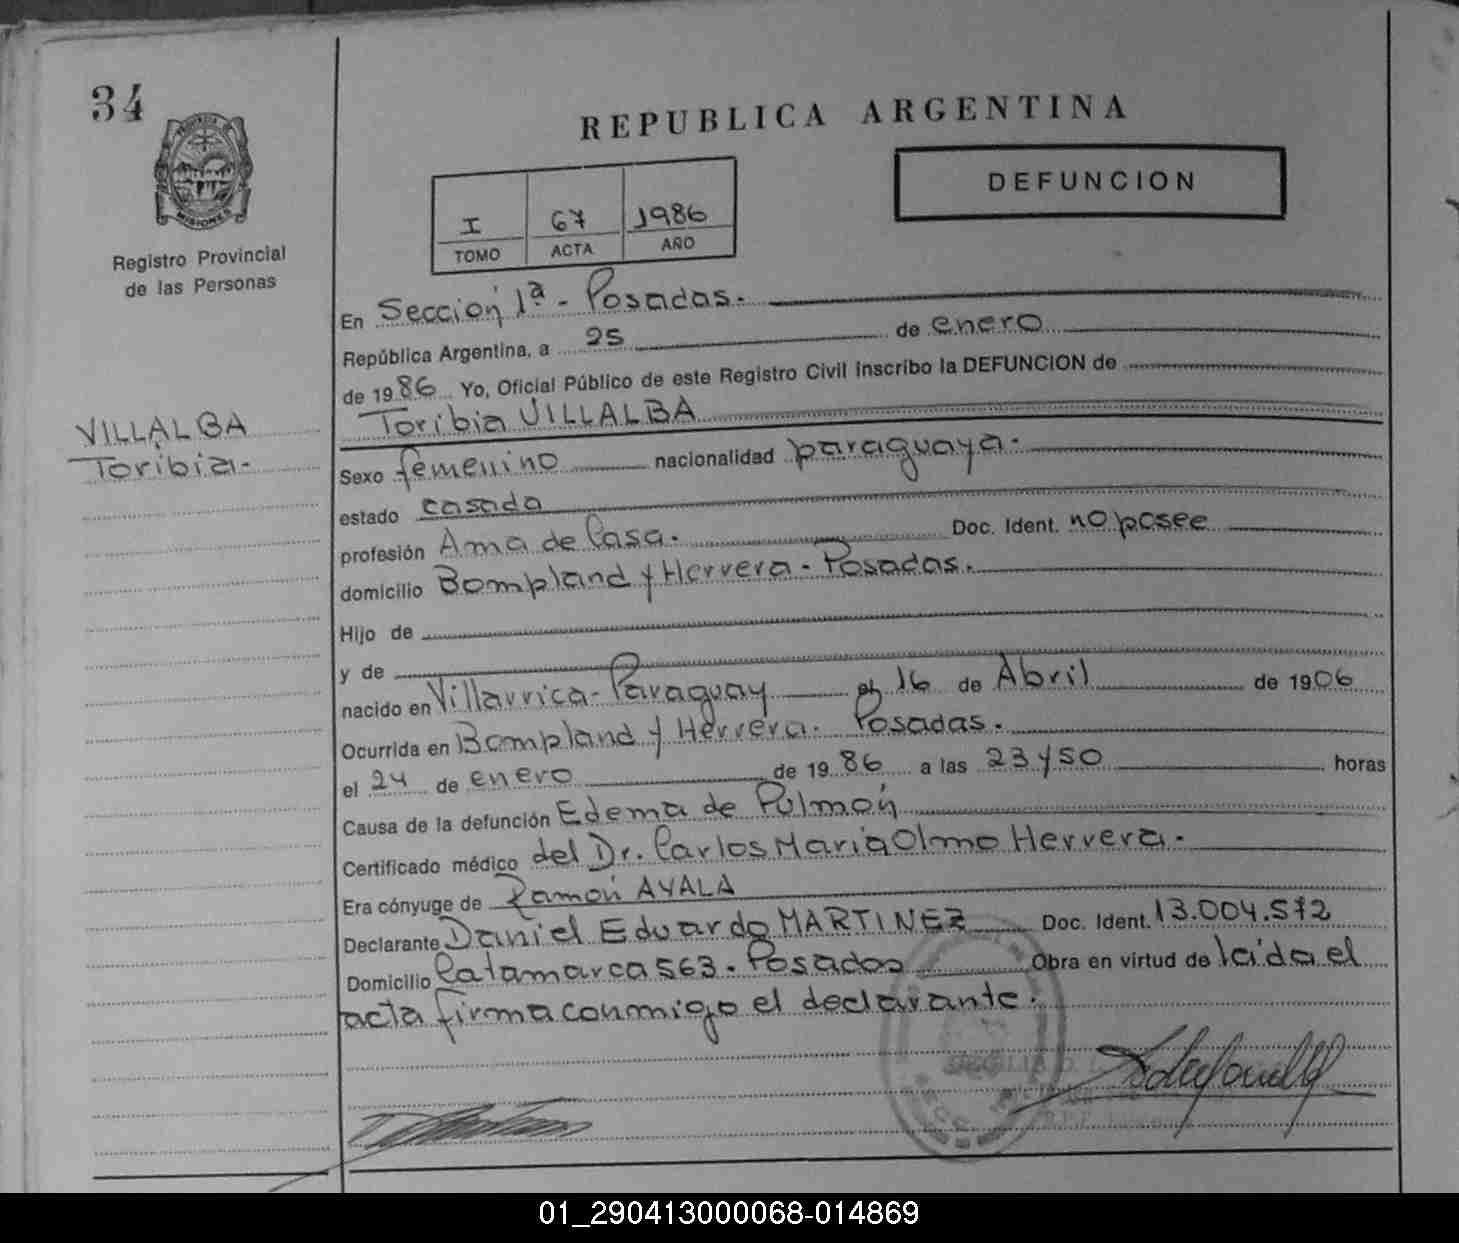 34
PROVINCIA DE
MISIONES
Registro Provincial
de las Personas
REPUBLICA ARGENTINA
DEFUNCION
I 67 1986
TOMO ACTA AÑO
En Sección 1ª - Posadas.
República Argentina, a 25 de enero
de 1986 Yo, Oficial Público de este Registro Civil inscribo la DEFUNCION de
Toribia VILLALBA
VILLALBA
Toribia-
Sexo femenino nacionalidad paraguaya.
estado casada
profesión Ama de Casa. Doc. Ident. no posee
domicilio Bompland y Herrera - Posadas.
Hijo de
y de
nacido en Villarrica - Paraguay el 16 de Abril de 1906
Ocurrida en Bompland y Herrera. Posadas.
el 24 de enero de 1986 a las 23 y 50 horas
Causa de la defunción Edema de Pulmón
Certificado médico del Dr. Carlos Maria Olmo Herrera.
Era cónyuge de Ramón AYALA
Declarante Daniel Eduardo MARTINEZ Doc. Ident. 13.004.572
Domicilio Catamarca 563. Posadas Obra en virtud de leída el
acta firma conmigo el declarante.
01_290413000068-014869